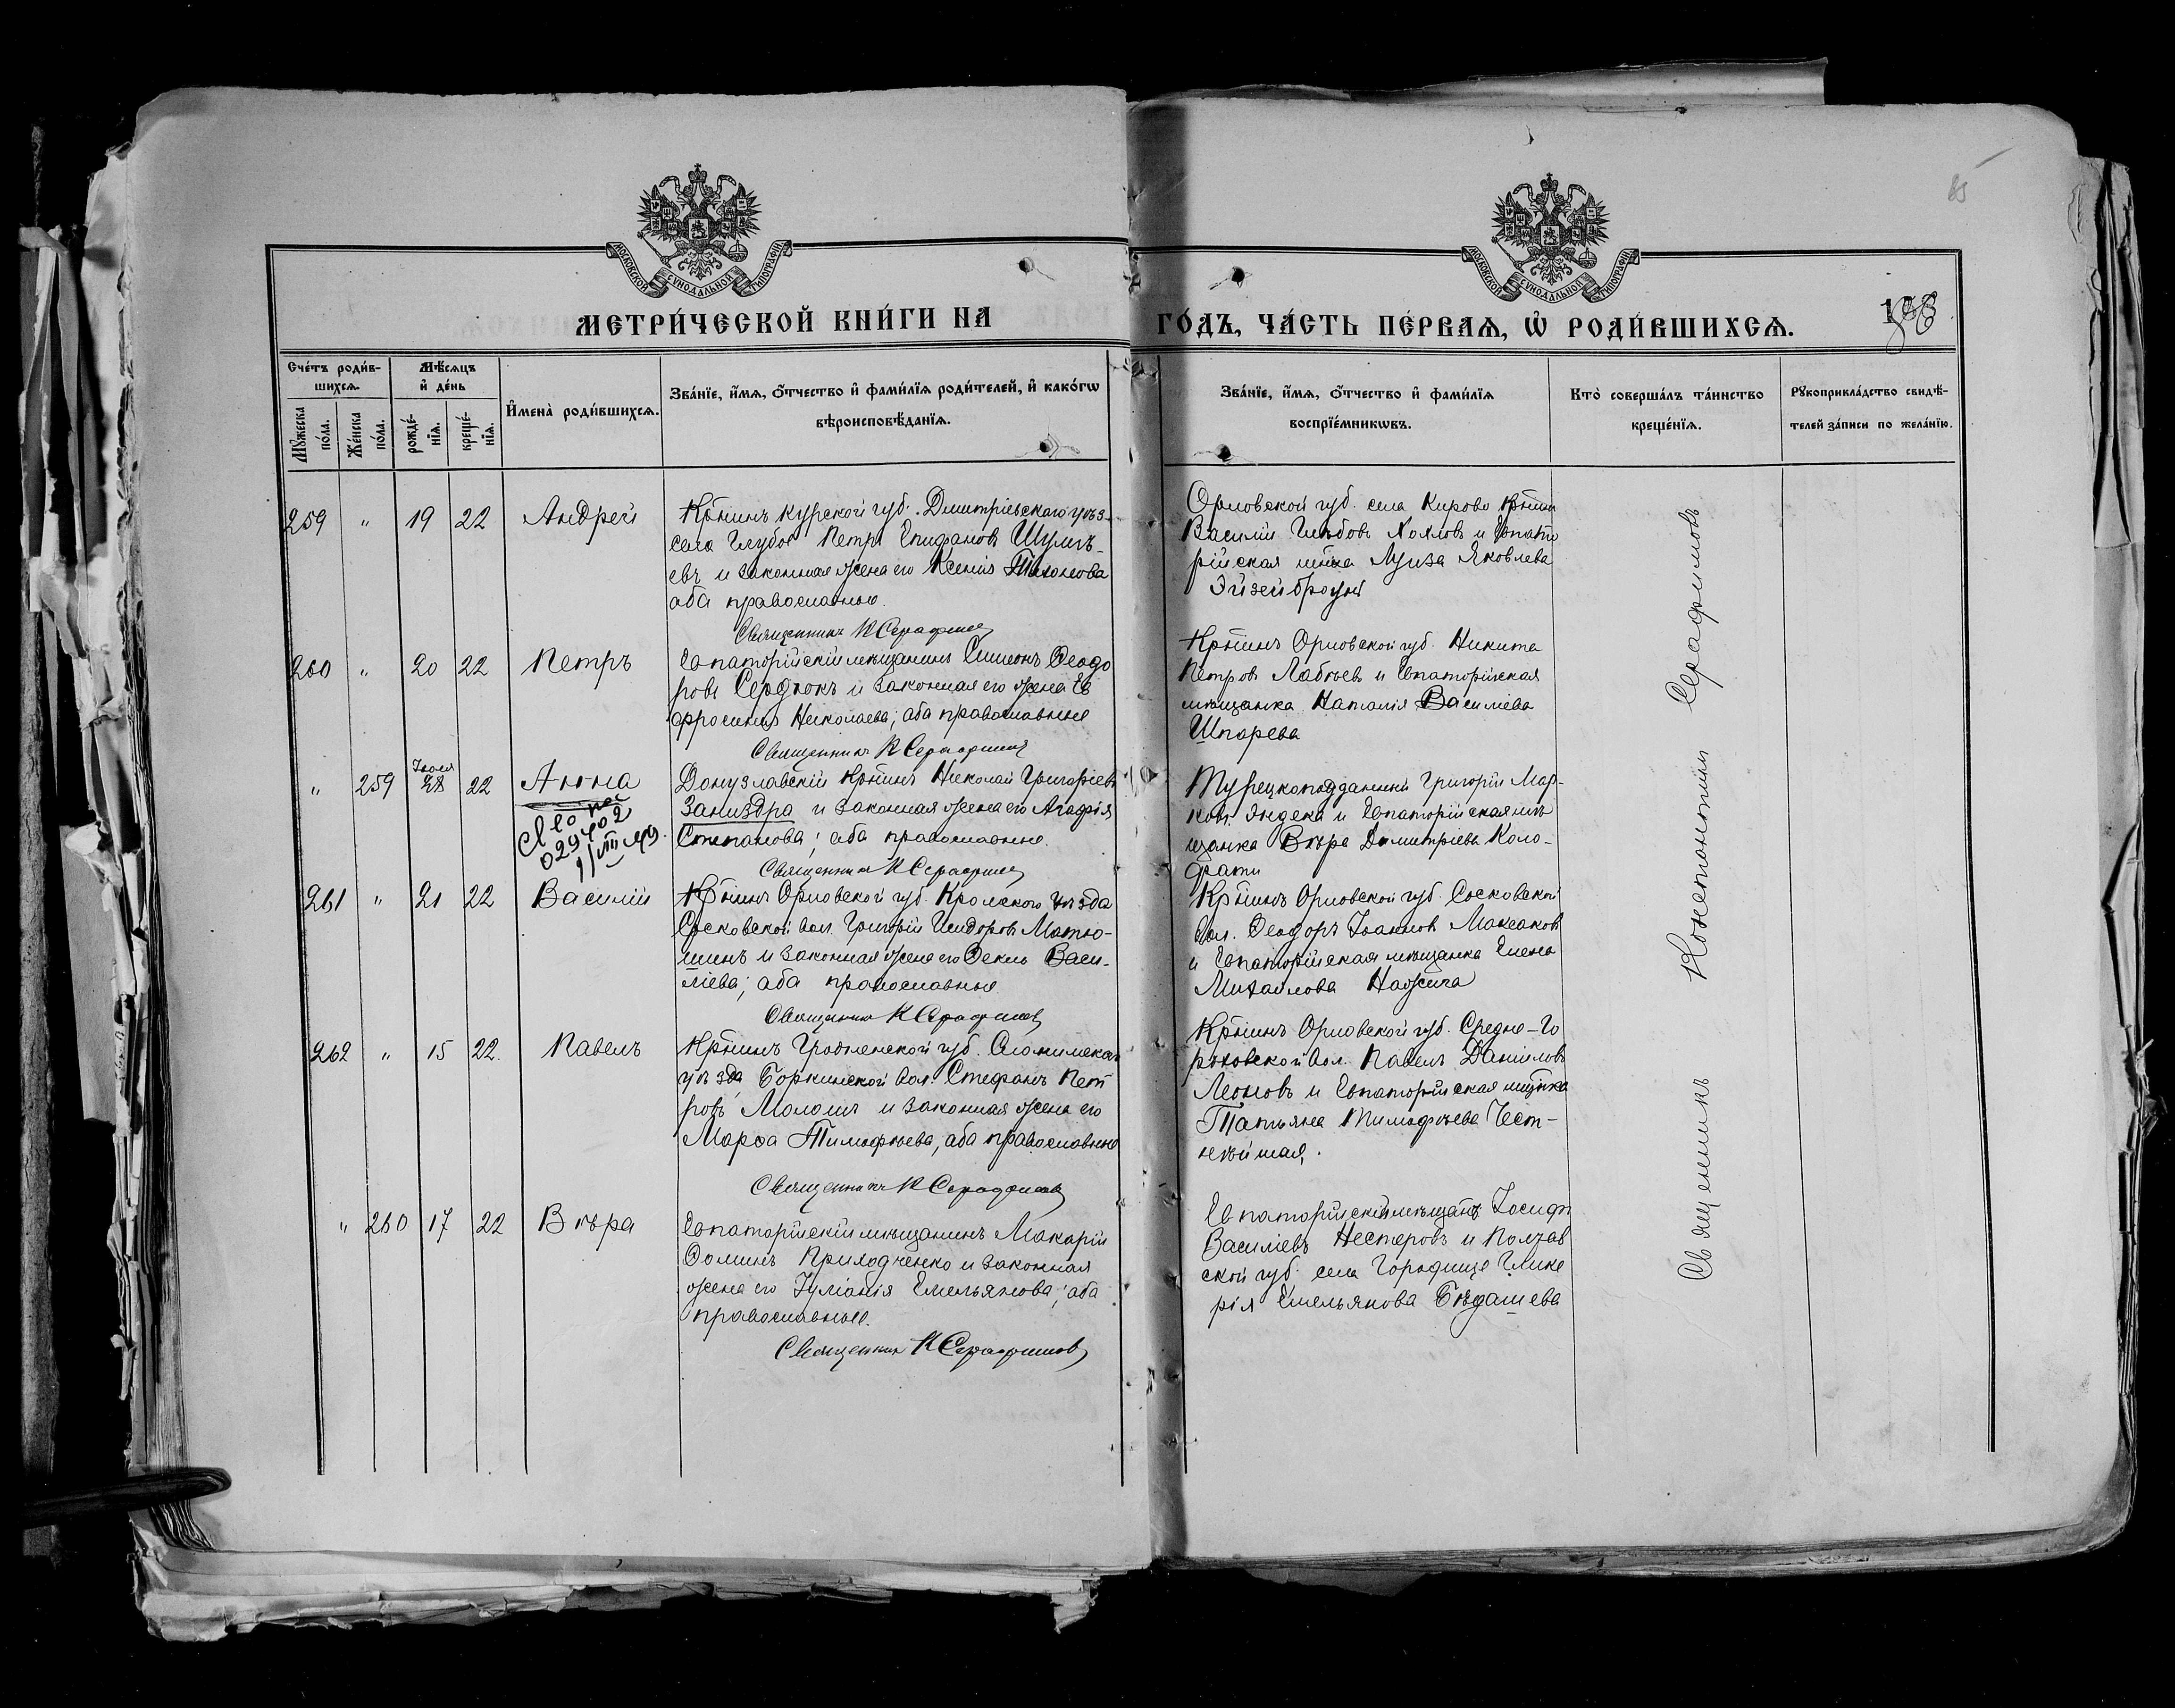 85
МОСКОВСКОЙ СУНОДАЛЬНОЙ ТИПОГРАФІИ
МОСКОВСКОЙ СУНОДАЛЬНОЙ ТИПОГРАФІИ
МЕТРИ́ЧЕСКОЙ КНИ́ГИ НА
ГО́ДЪ, ЧА́СТЬ ПЕ́РВАѦ, Ѡ҆ РОДИ́ВШИХСѦ.
Сче́тъ роди́в-
шихсѧ.
Мꙋжеска
по́ла.
Же́нска
по́ла.
Мѣ́сѧцъ
и҆ де́нь
рожде́-
нїѧ.
креще́-
нїѧ.
И҆мена̀ роди́вшихсѧ.
Зва́нїе, и҆́мѧ, ѻ҆́тчество и҆ фами́лїѧ роди́телей, и҆ како́гѡ
вѣроисповѣ́данїѧ.
Зва́нїе, и҆́мѧ, ѻ҆́тчество и҆ фами́лїѧ
воспрїе́мникѡвъ.
Кто̀ соверша́лъ та́инство
креще́нїѧ.
Рꙋкоприкла́дство свидѣ́-
телей за́писи по жела́нїю.
259 " 19 22 Андрей
Крнинъ Курской губ. Дмитріевскаго уѣз.
села Петръ Епифановъ Шулм-
евъ и законная жена его Ксенія Тихонова
оба православные.
Священникъ К Серафимов
Орловской губ. села Кирово крнин
Василій Глѣбовъ Хохловъ и Евпато
рійская Луиза Яковлева
Эйзенбраунъ
260 " 20 22 Петръ
Евпаторійскій мѣщанинъ Симеонъ Ѳеодо
ровъ Сердюкъ и законная его жена Ев
фросинія Николаева; оба православные
Священникъ К Серафимов
Крнинъ Орловской губ. Никита
Петровъ Лабѣевъ и Евпаторійская
мѣщанка Наталія Василіева
Шпарева
" 259 Іюля 28 22 Анна
029402
11/VIII 49.
Донузлавскій Крнинъ Николай Григоріевъ
Заниздра и законная жена его Агафія
Степанова; оба православные.
Священникъ К Серафимов
Турецкоподданный Григорій Мар-
ковъ Индека и Евпаторійская мѣ
щанка Вѣра Димитріева Коло-
фати
261 " 21 22 Василій
Крнинъ Орловской губ. Кромского уѣзда
Сосковской вол. Григорій Исидоровъ Матю-
шинъ и законная жена его Ѳекла Васи-
ліева; оба православные
Священникъ К Серафимов
Крнинъ Орловской губ. Сосковской
вол. Ѳеодоръ Іоанновъ Максаковъ
и Евпаторійская мѣщанка Елена
Михайлова
262 " 15 22. Павелъ
Крнинъ Гродненской губ. Слонимскаго
уѣзда Боркинской вол. Стефанъ Пет
ровъ Молошъ и законная жена его
Марѳа Тимофѣева, оба православные
Священникъ К Серафимов
Крнинъ Орловской губ. Средне-Го
роховской вол. Павелъ Даніиловъ
Леоновъ и Евпаторійская мщнка
Татьяна Тимофѣева Чест-
нѣйшая.
" 260 17 22 Вѣра
Евпаторійскій мѣщанинъ Макарій
Ѳоминъ Приходченко и законная
жена его Іуліанія Емельянова; оба
православные.
Священникъ К Серафимовъ
Евпаторійскій мѣщанъ Іосифъ
Василіевъ Нестеровъ и Полтав
ской губ. села Городище Глике
рія Емельянова Бѣдашева
Священникъ Константинъ Серафимовъ